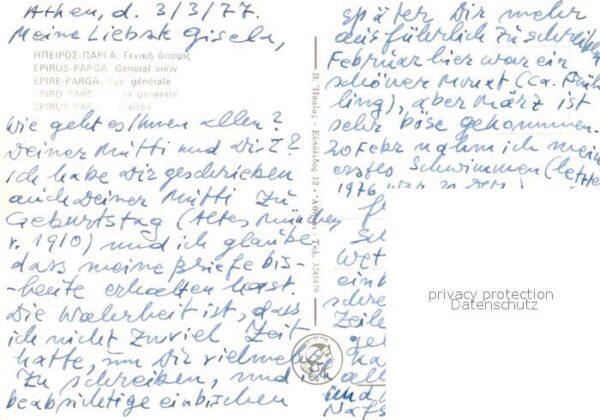 Athen, d. 3/3/77.
Meine Liebste Gisela,
ΗΠΕΙΡΟΣ-ΠΑΡΓΑ. Γενική άποψις
EPIRUS-PARGA. General view
EPIRE-PARGA. Vue générale
EPIRO-PARG generale
EPIRUS-PAR nsicht
Wie geht es Ihnen allen?
Deiner Mutti und Dir?
Ich habe Dir geschrieben
auch Deiner Mutti zu
Geburtstag (Altes München
v. 1910) und ich glaube
dass meine Briefe bis-
heute erhalten hast.
Die Wahrheit ist, dass
ich nicht zuviel Zeit
hatte, um Dir vielmehr
zu schreiben, und ich
beabsichtige einbischen
Β. Ἠσαΐας - Εὐπόλιδος 12 - Ἀθῆναι - Τηλ. 3245479
später Dir mehr
ausführlich zu schreiben
Februar hier war ein
schöner Monat (ca. Früh
ling), aber März ist
sehr böse gekommen.
20 Febr nahm ich mein
erstes Schwimmen (letzte
1976
Wet
ein
schre
Zeile
gel
ha
all
und
privacy protection
Datenschutz